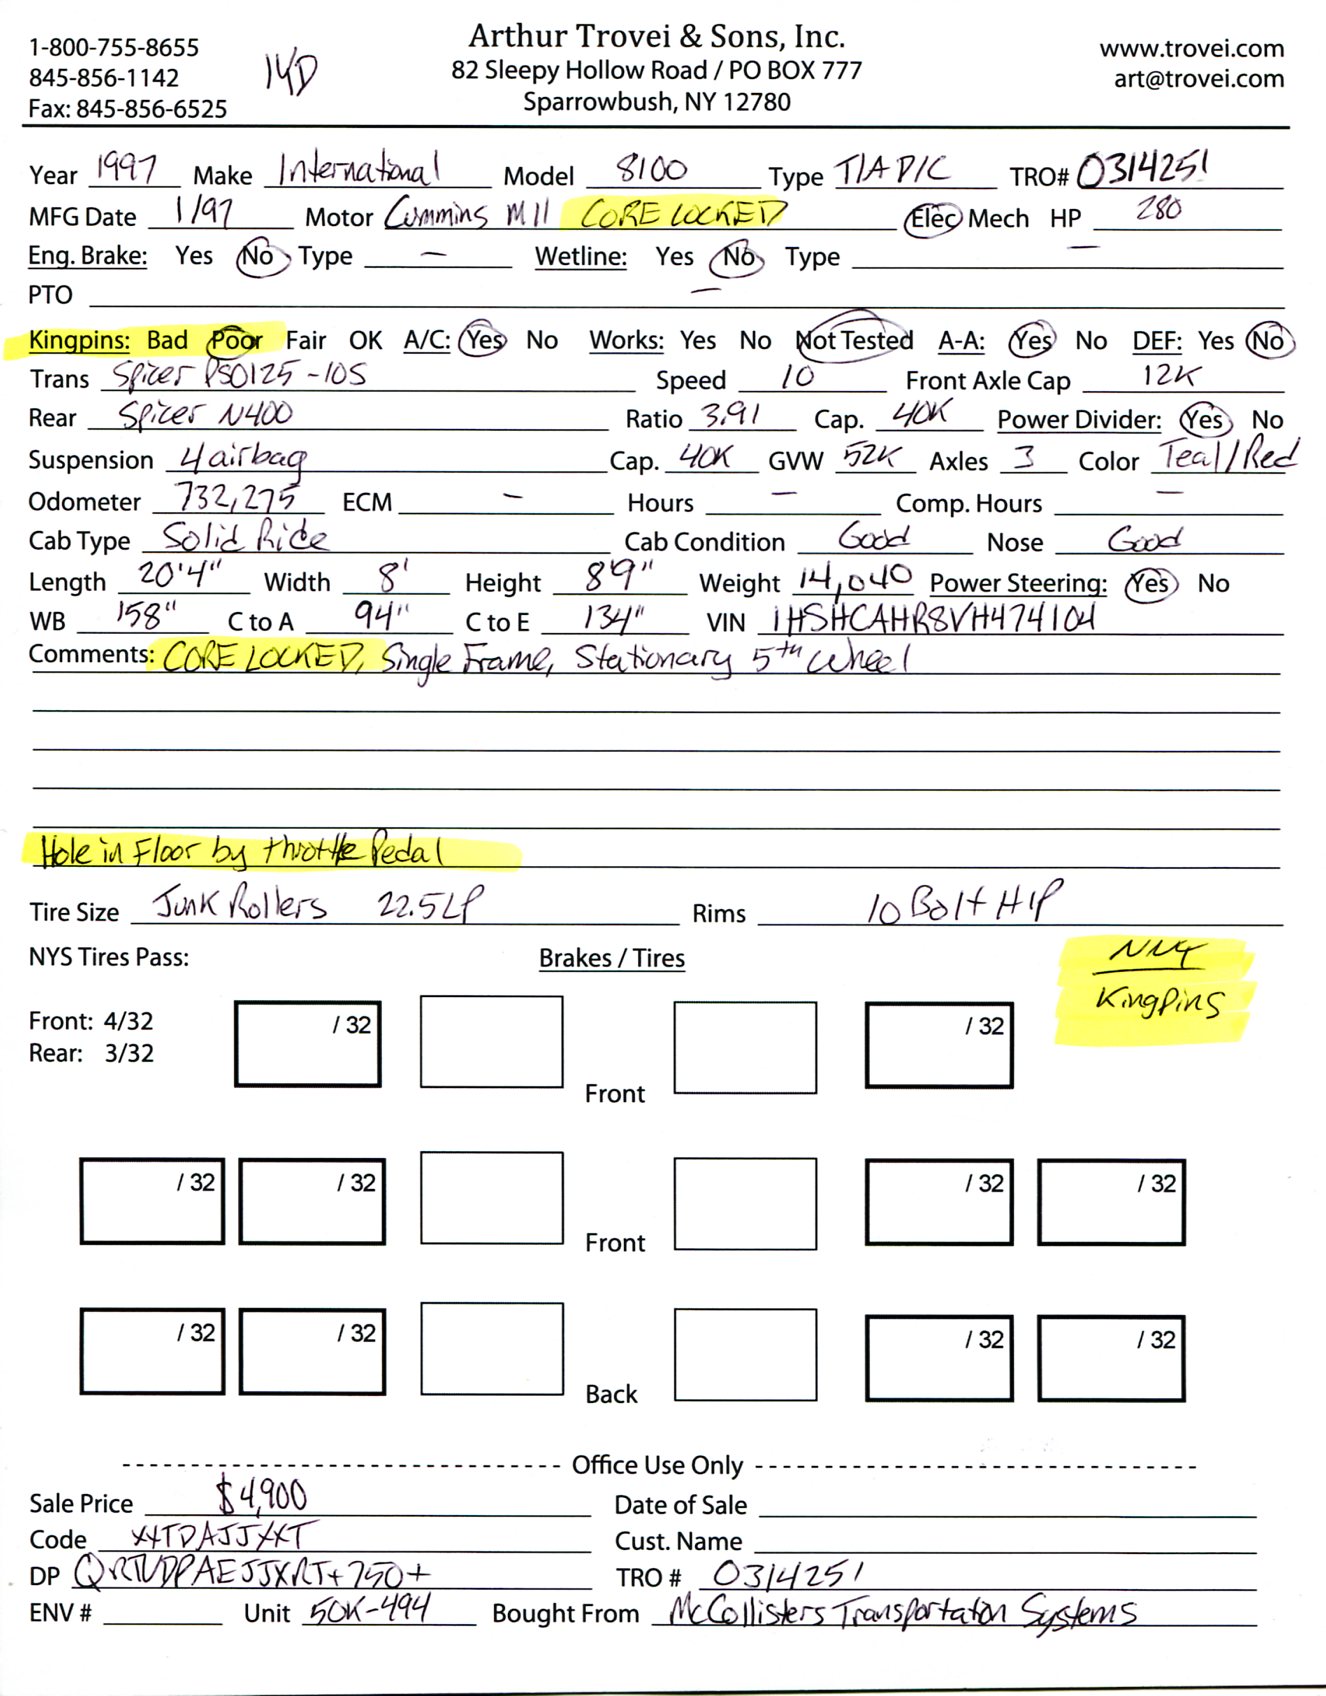 1-800-755-8655
845-856-1142
Fax: 845-856-6525
14D
Arthur Trovei & Sons, Inc.
82 Sleepy Hollow Road / PO BOX 777
Sparrowbush, NY 12780
www.trovei.com
art@trovei.com
Year 1997 Make International Model 8100 Type T/A D/C TRO# 0314251
MFG Date 1/97 Motor Cummins M11 CORE LOCKED Elec Mech HP 280
Eng. Brake: Yes No Type — Wetline: Yes No Type —
PTO —
Kingpins: Bad Poor Fair OK A/C: Yes No Works: Yes No Not Tested A-A: Yes No DEF: Yes No
Trans Spicer PSO125-10S Speed 10 Front Axle Cap 12K
Rear Spicer N400 Ratio 3.91 Cap. 40K Power Divider: Yes No
Suspension 4 airbag Cap. 40K GVW 52K Axles 3 Color Teal/Red
Odometer 732,275 ECM — Hours — Comp. Hours —
Cab Type Solid Ride Cab Condition Good Nose Good
Length 20'4" Width 8' Height 8'9" Weight 14,040 Power Steering: Yes No
WB 158" C to A 94" C to E 134" VIN 1HSHCAHR8VH474104
Comments: CORE LOCKED, Single Frame, Stationary 5th Wheel
Hole in Floor by throttle Pedal
Tire Size Junk Rollers 22.5LP Rims 10 Bolt HP
NYS Tires Pass: Brakes / Tires
Kingpins
Front: 4/32
Rear: 3/32
/ 32 / 32
Front
/ 32 / 32 / 32 / 32
Front
/ 32 / 32 / 32 / 32
Back
Office Use Only
Sale Price $4,900 Date of Sale
Code Cust. Name
DP TRO # 0314251
ENV # Unit 50K-494 Bought From McCollisters Transportation Systems